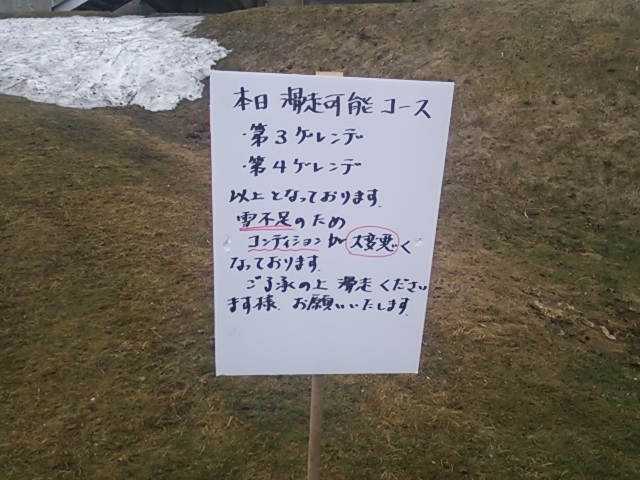 本日 滑走可能 コース
・第3ゲレンデ
・第4ゲレンデ
以上となっております。
雪不足のため
コンディションが 大変悪く
なっております。
ご了承の上 滑走ください
ます様、お願いいたします。